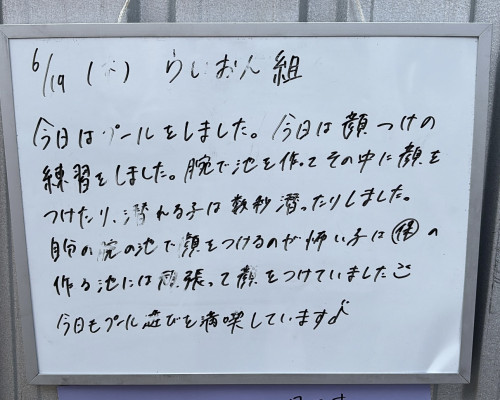 6/19 (水) らいおん組
今日はプールをしました。今日は顔つけの
練習をしました。腕で池を作ってその中に顔を
つけたり、潜れる子は数秒潜ったりしました。
自分の腕の池で顔をつけるのが怖い子は㋭の
作る池には頑張って顔をつけていました
今日もプール遊びを満喫しています♪